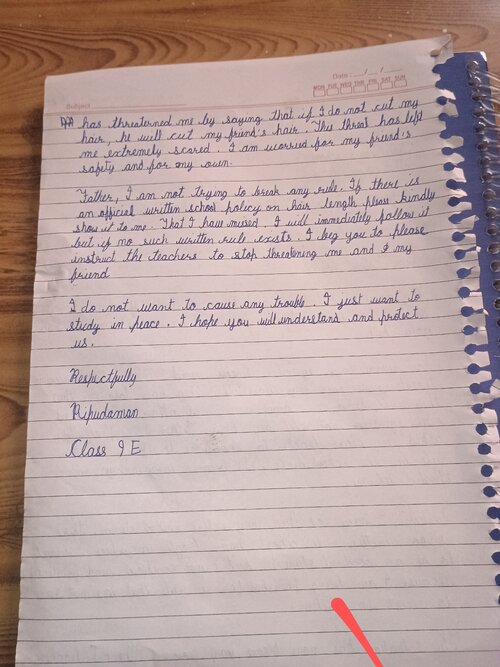 Date : __/__/__
MON TUE WED THR FRI SAT SUN
Subject
has threaterned me by saying that if I do not cut my
hair, he will cut my friend's hair. This threat has left
me extremely scared. I am worried for my friend's
safety and for my own.
Father, I am not trying to break any rule. If there is
an official written school policy on hair length please kindly
show it to me. That I have missed. I will immediately follow it
but if no such written rule exists. I beg you to please
instruct the teachers to stop threatening me and my
friend
I do not want to cause any trouble. I just want to
study in peace. I hope you will understand and protect
us.
Respectfully
Ripudaman
Class 9 E